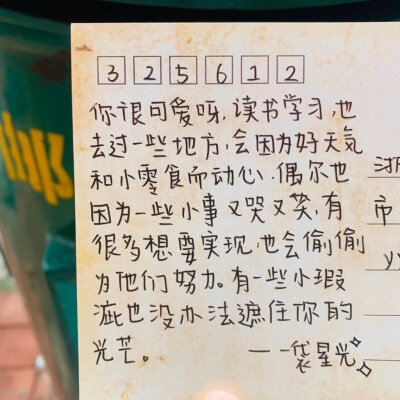 3 2 5 6 1 2
你很可爱呀，读书学习，也
去过一些地方，会因为好天気
和小零食而动心，偶尔也
因为一些小事又哭又笑，有
很多想要实现，也会偷偷
为他们努力。有一些小瑕
疵也没办法遮住你的
光芒。 ——一袋星光
浙
市